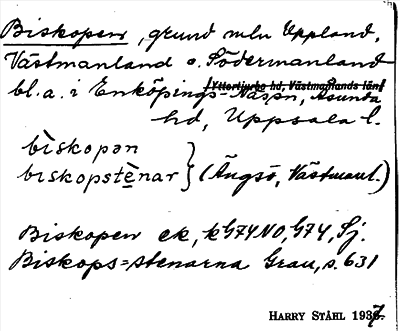 Biskopen, grund mln Uppland,
Västmanland o. Södermanland
[Yttertjurbo hd, Västmanlands län]
bl.a. i Enköpings-Näspn, Åsunda
hd, Uppsala l.
bìskopən
biskopstènar } (Ängsö, Västmanl.)
Biskopen ek, kG74NO, G74, Sj.
Biskops=stenarna Grau, s. 631
HARRY STÅHL 1937.